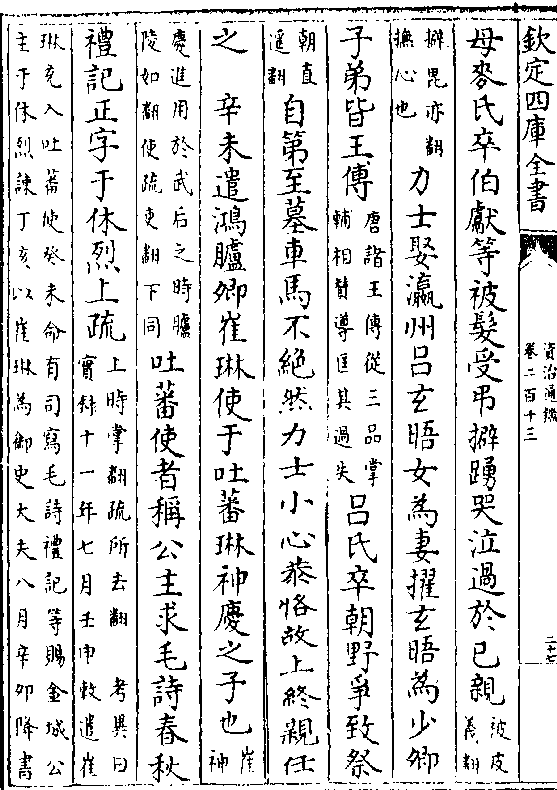 欽定四庫全書
資治通鑑
卷二百十三
二十七
母麥氏卒伯獻等被髮受弔擗踴哭泣過於已親被皮
義翻
擗毘亦翻
撫心也
力士娶瀛州吕玄晤女為妻擢玄晤為少卿
子弟皆王傅唐諸王傅從三品掌
輔相贊導匡其過失
吕氏卒朝野爭致祭
朝直
遥翻
自第至墓車馬不絶然力士小心恭恪故上終親任
之
辛未遣鴻臚卿崔琳使于吐蕃琳神慶之子也崔
神
慶進用於武后之時臚
陵如翻使疏吏翻下同
吐蕃使者稱公主求毛詩春秋
禮記正字于休烈上疏上時掌翻疏所去翻 考異曰
實録十一年七月壬申敕遣崔
琳充入吐蕃使癸未命有司寫毛詩禮記等賜金城公
主于休烈諫丁亥以崔琳為御史大夫八月辛卯降書